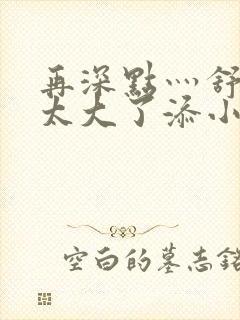 再深點灬舒
太大了添小
空白的墓志銘